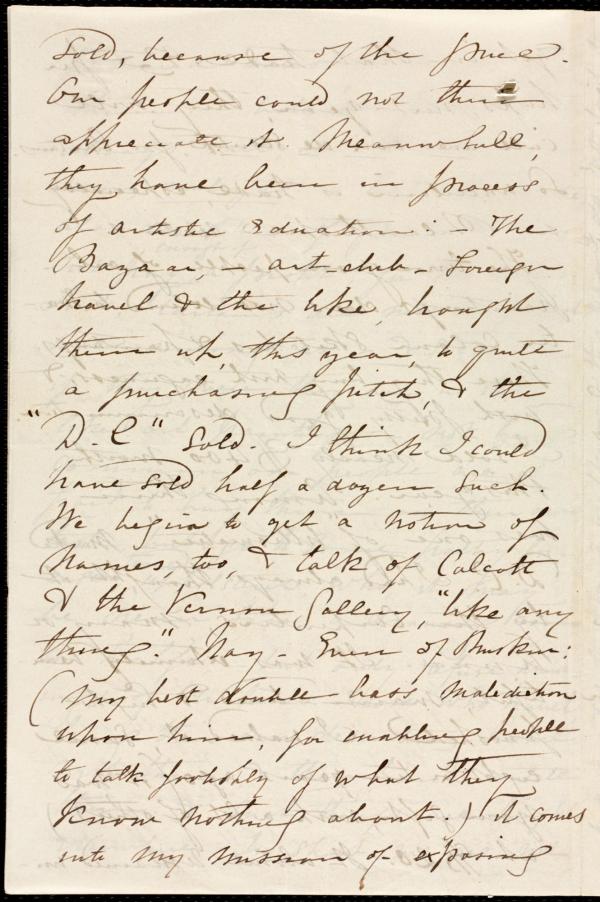 Sold, because of the price.
Our people could not then
appreciate it. Meanwhile,
they have been in process
of artistic Education: - The
Bazaar, - art-club - Foreign
travel & the like, bought
them up, this year, to quite
a purchasing pitch, & the
"D. C" Sold. I think I could
have sold half a dozen such.
We begin to get a notion of
Names, too, & talk of Calcott
& the Vernon Gallery, "like any
thing." Nay - Even of Ruskin:
(My best double bass malediction
upon him, for enabling people
to talk foolishly of what they
Know nothing about.) It comes
into my mission of exposing